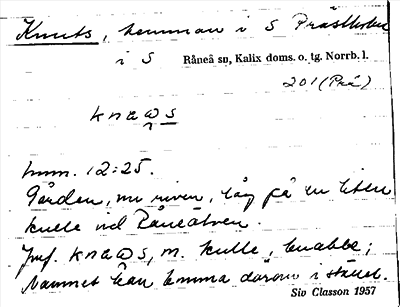 Knuts, hemman i S Prästholm
i S Råneå sn, Kalix doms. o. tg. Norrb. l.
201 (Prä)
knaws
hmn. 12:25.
Gården, nu riven, låg på en liten
kulle vid Råneälven.
Jmf. knaws, m. kulle, knabbe;
namnet kan komma därom i stället.
Siv Classon 1957